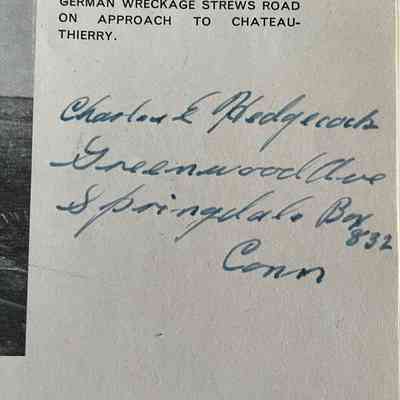 GERMAN WRECKAGE STREWS ROAD
ON APPROACH TO CHATEAU-
THIERRY.
Charles E Hedgecock
Greenwood Ave
Springdale Box
832
Conn